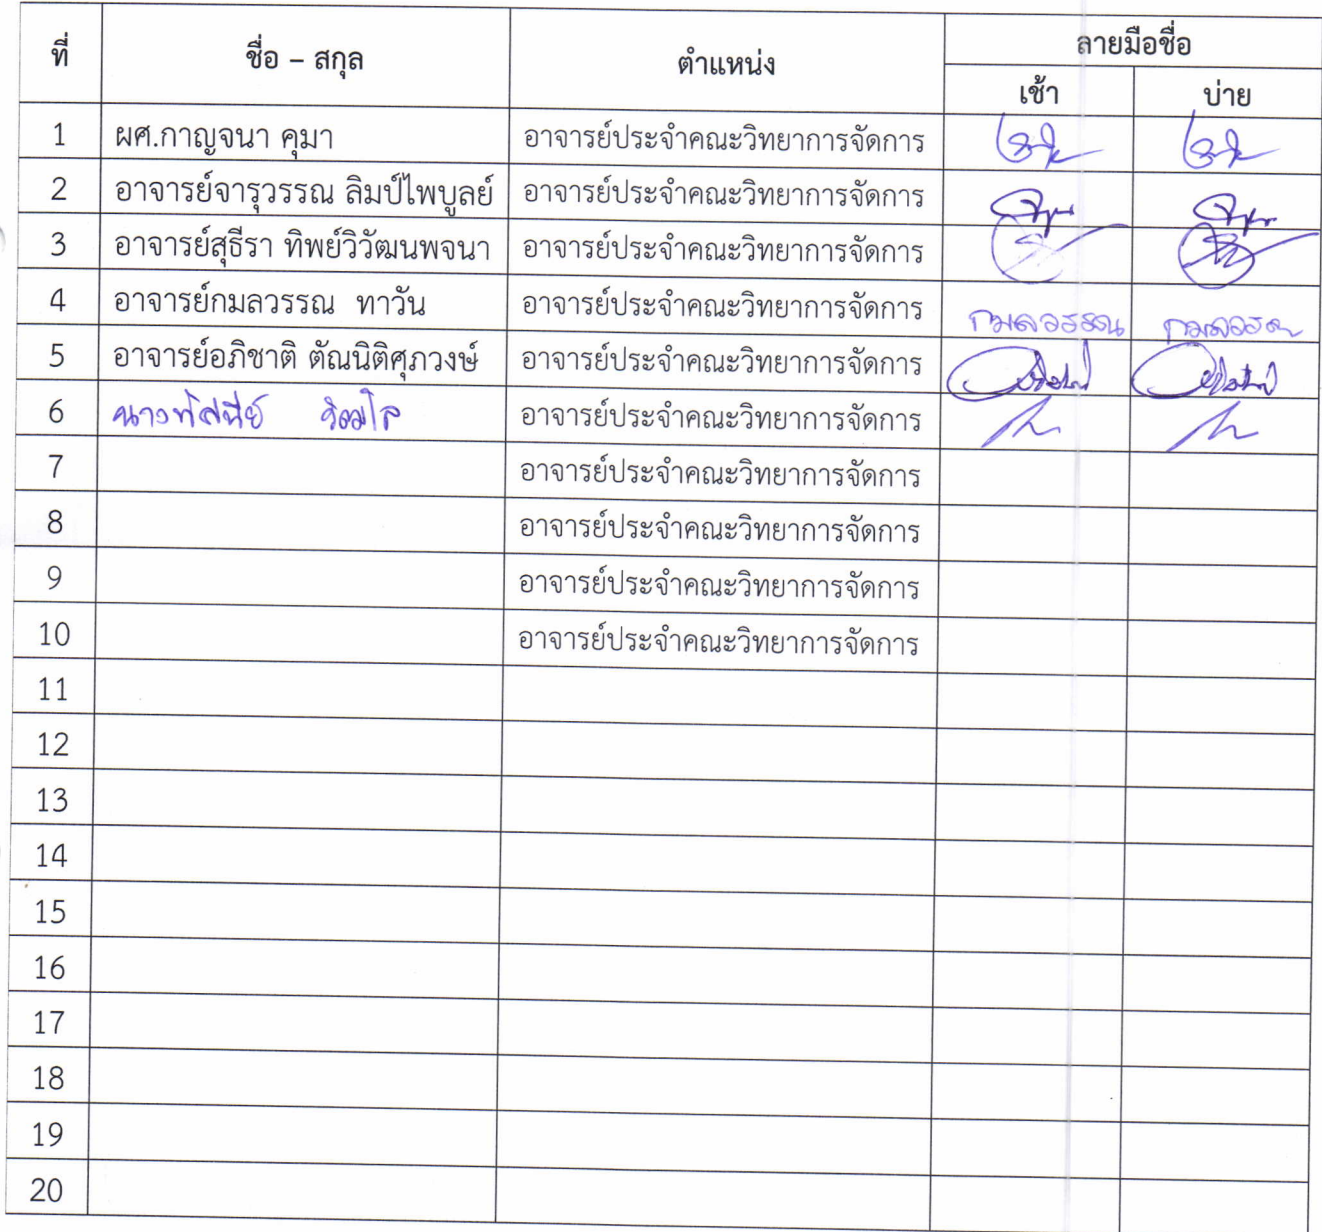 ที่ ชื่อ – สกุล ตำแหน่ง ลายมือชื่อ
เช้า บ่าย
1 ผศ.กาญจนา คุมา อาจารย์ประจำคณะวิทยาการจัดการ
2 อาจารย์จารุวรรณ ลิมป์ไพบูลย์ อาจารย์ประจำคณะวิทยาการจัดการ
3 อาจารย์สุธีรา ทิพย์วิวัฒนพจนา อาจารย์ประจำคณะวิทยาการจัดการ
4 อาจารย์กมลวรรณ ทาวัน อาจารย์ประจำคณะวิทยาการจัดการ กมลวรรณ กมลวรรณ
5 อาจารย์อภิชาติ ตัณนิติศุภวงษ์ อาจารย์ประจำคณะวิทยาการจัดการ
6 นางทัศนีย์ อาจารย์ประจำคณะวิทยาการจัดการ
7 อาจารย์ประจำคณะวิทยาการจัดการ
8 อาจารย์ประจำคณะวิทยาการจัดการ
9 อาจารย์ประจำคณะวิทยาการจัดการ
10 อาจารย์ประจำคณะวิทยาการจัดการ
11
12
13
14
15
16
17
18
19
20